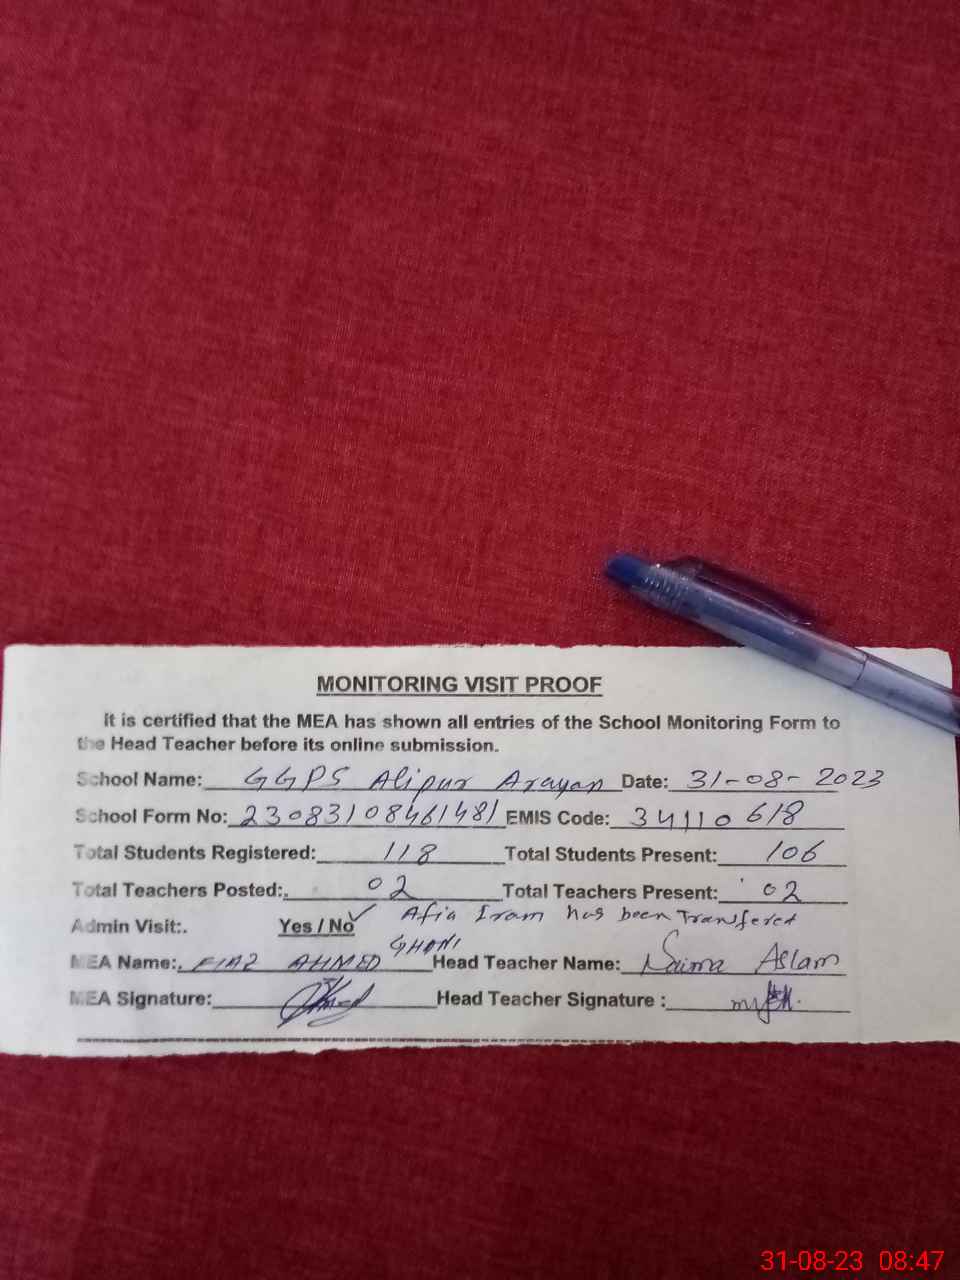 MONITORING VISIT PROOF
It is certified that the MEA has shown all entries of the School Monitoring Form to
the Head Teacher before its online submission.
School Name: GGPS Alipur Arayan Date: 31-08-2023
School Form No: 23083108461481 EMIS Code: 34110618
Total Students Registered: 118 Total Students Present: 106
Total Teachers Posted: 02 Total Teachers Present: 02
Admin Visit: Yes / No ✓ Afia Iram has been Transfered
MEA Name: FIAZ AHMED GHANI Head Teacher Name: Naima Aslam
MEA Signature: Head Teacher Signature :
31-08-23 08:47